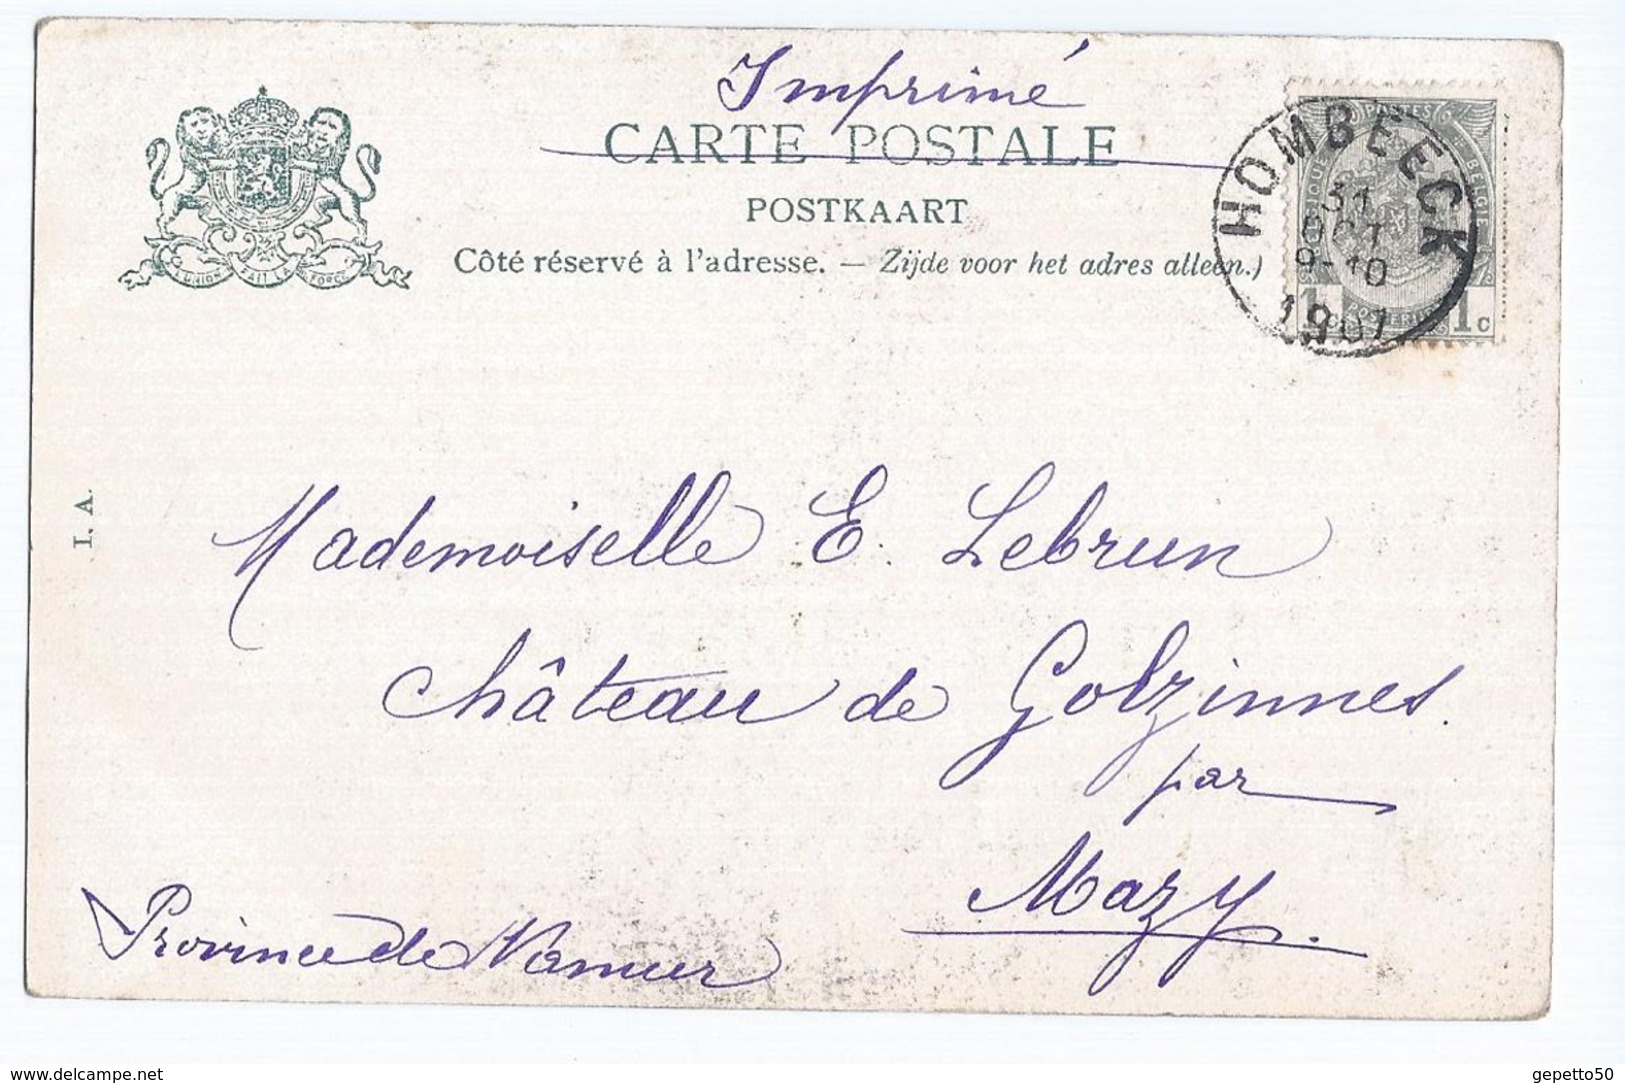 Imprimé
CARTE POSTALE
POSTKAART
Côté réservé à l'adresse. — Zijde voor het adres alleen.)
L'UNION FAIT LA FORCE
HOMBEECK
31
OCT
9-10
1901
POSTES
BELGIE
1c
I. A.
Mademoiselle E. Lebrun
Château de Golzinnes.
par
Mazy.
Province de Namur
www.delcampe.net
gepetto50